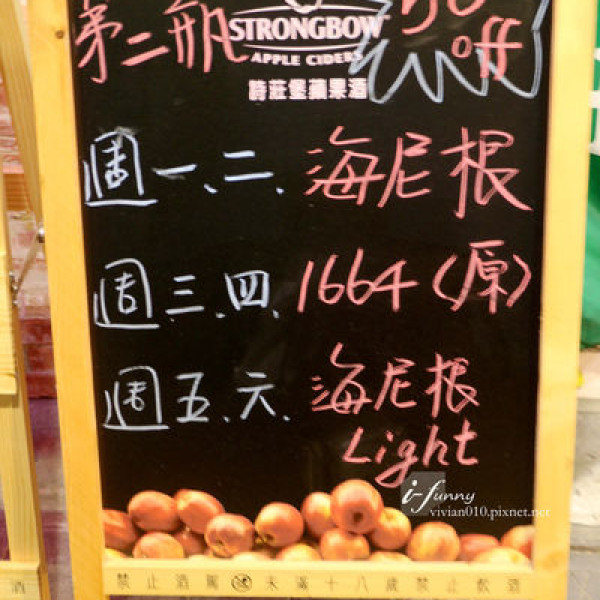 第二瓶 50
off
STRONGBOW
APPLE CIDERS
詩莊堡蘋果酒
週一、二、海尼根
週三、四、1664(原)
週五、六、海尼根
Light
i-funny
vivian010.pixnet.net
禁止酒駕 未滿十八歲禁止飲酒
酒